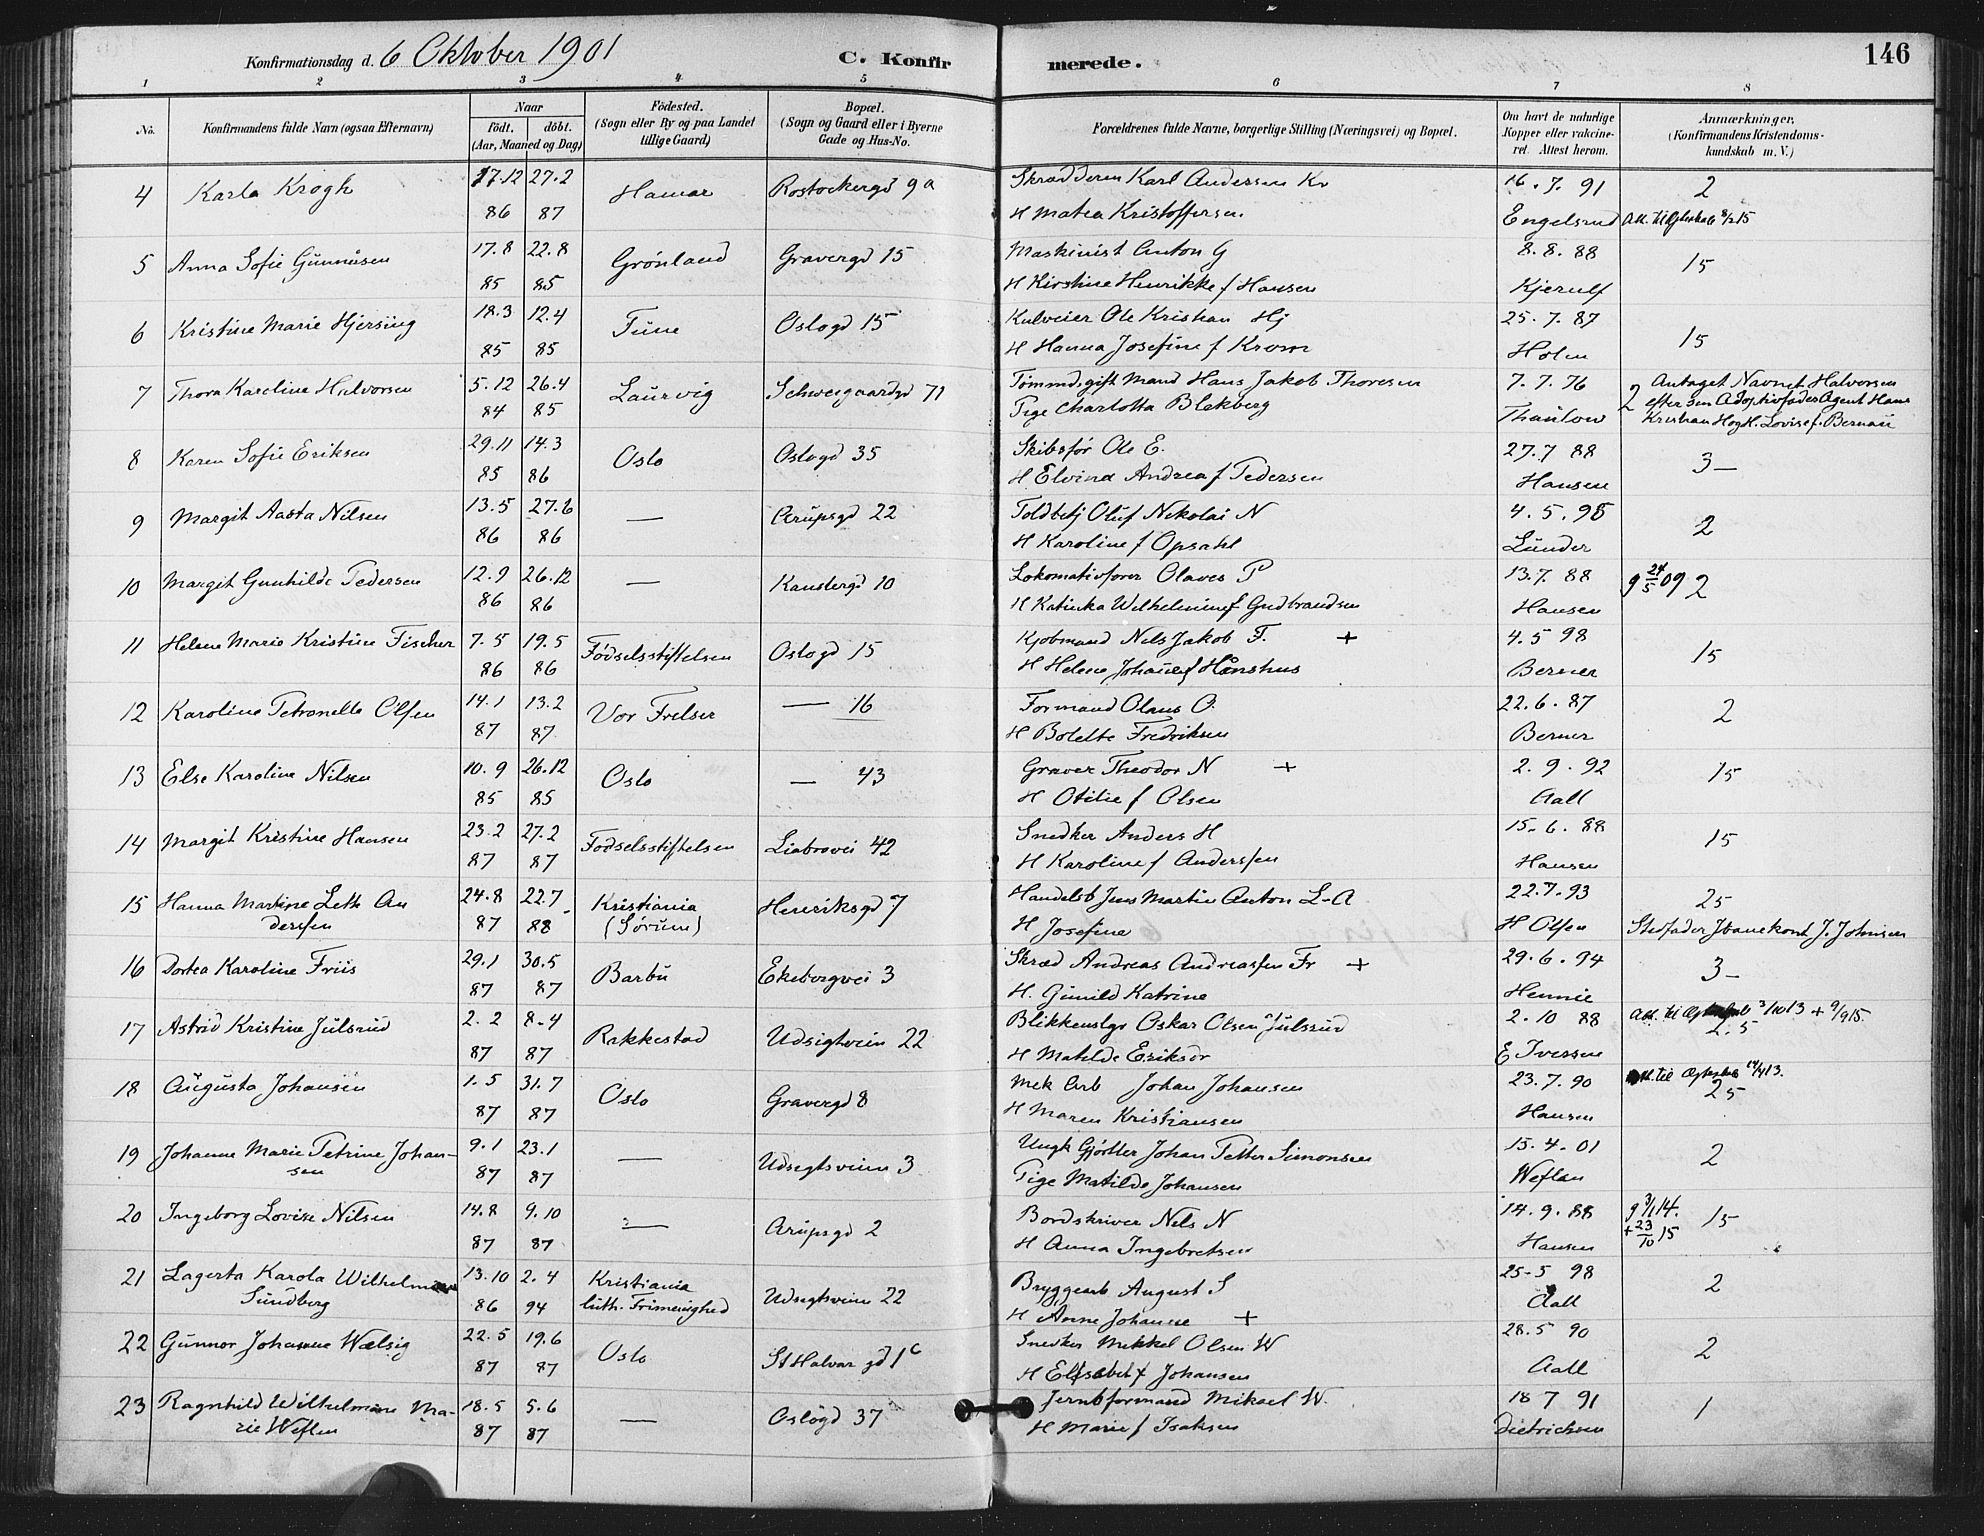 Konfirmationsdag d. 6 Oktober 1901
C. Konfirmerede.
146
1 2 3 4 5 6 7 8
No.
Konfirmandens fulde Navn (ogsaa Efternavn)
Naar
födt. döbt.
(Aar, Maaned og Dag)
Födested.
(Sogn eller By og paa Landet
tillige Gaard)
Bopæl.
(Sogn og Gaard eller i Byerne
Gade og Hus-No.
Forældrenes fulde Navne, borgerlige Stilling (Næringsvei) og Bopæl.
Om havt de naturlige
Kopper eller vakcine-
ret. Attest herom.
Anmærkninger.
(Konfirmandens Kristendoms-
kundskab m. V.)
4 Karla Krogh 17.12 27.2 Hamar Rostockergd 9a Skrædderen Karl Andersen Kr 16.7.91 2
86 87 H Matea Kristoffersen Engelsrud Att. til 8/2 15
5 Anna Sofie Gunnusen 17.8 22.8 Grønland Gravergd 15 Maskinist Anton G 8.8.88 15
85 85 H Kirstine Henrikke f Hansen Kjerulf
6 Kristine Marie Hjersing 18.3 12.4 Tune Oslogd 15 Kulveier Ole Kristian Hj 25.7.87 15
85 85 H Hanna Josefine f Krom Holm
7 Thora Karoline Halvorsen 5.12 26.4 Laurvig Schweigaardsgd 71 Tømmd. gift Mand Hans Jakob Thoresen 7.7.76 2 Antaget Navnet Halvorsen
84 85 Pige Charlotta Blekberg Thaulow efter sin Adoptivfader Agent Hans
Kristian H og H. Lovise f. Bernau
8 Karen Sofie Eriksen 29.11 14.3 Oslo Oslogd 35 Skibsfør Ole E. 27.7 88 3-
85 86 H Elvina Andrea f Pedersen Hansen
9 Margit Aasta Nilsen 13.5 27.6 — Arupsgd 22 Toldbetj Oluf Nikolai N 4.5.95 2
86 86 H Karoline f Opsahl Lunder
10 Margit Gunhilde Pedersen 12.9 26.12 — Kanslergd 10 Lokomotivfører Olaves P 13.7.88 g 24/5 09 2
86 86 H Katinka Wilhelmine f Gudbrandsen Hansen
11 Helene Marie Kristine Fischer 7.5 19.5 Födselsstiftelsen Oslogd 15 Kjøbmand Nils Jakob F. + 4.5 98 15
86 86 H Helene Johane f Hönshus Berner
12 Karoline Petronelle Olsen 14.1 13.2 Vor Frelser — 16 Formand Olaus O. 22.6.87 2
87 87 H Bolette Fredriksen Berner
13 Else Karoline Nilsen 10.9 26.12 Oslo — 43 Graver Theodor N + 2.9.92 15
85 85 H Otilie f Olsen Aall
14 Margit Kristine Hansen 23.2 27.2 Födselsstiftelsen Liabrovei 42 Snedker Anders H 15.6.88 15
87 87 H Karoline f Anderssen Hansen
15 Hanna Martine Leth An 24.8 22.7 Kristiania Henriksgd 7 Handelsb Jens Martin Anton L-A 22.7.93 25
derssen 87 88 (Sørum) H Josefine H Olsen Stedfader Jbanekont J. Johnsen
16 Dortea Karoline Friis 29.1 30.5 Barbu Ekebergvei 3 Skræd Andreas Andreassen Fr + 29.6.94 3-
87 87 H. Gunild Katrine Hennie
17 Astrid Kristine Julsrud 2.2 8.4 Rakkestad Udsigtveien 22 Blikkenslgr Oskar Olsen Julsrud 2.10 88 Att. til 3/10 13 + 9/9 15.
87 87 H Matilde Eriksdr E Iversen 2.5
18 Augusta Johansen 1.5 31.7 Oslo Gravergd 8 Mek Arb Johan Johansen 23.7.90 til 14/4 13.
87 87 H Maren Kristiansen Hansen 25
19 Johanne Marie Petrine Johan- 9.1 23.1 — Udsigtsveien 3 Ungk Gjørtler Johan Petter Simonsen 15.4.01 2
sen 87 87 Pige Matilde Johansen Weflan
20 Ingeborg Lovise Nilsen 14.8 9.10 — Arupsgd 2 Bordskriver Nils N 14.9.88 g 3/1 14. 15
87 87 H Anna Ingebretsen Hansen + 23/10 15
21 Lagerta Karola Wilhelmine 13.10 2.4 Kristiania Udsigtsveien 22 Bryggearb August S 25-5 98 2
Sundberg 86 94 luth. Frimenighed H Anne Johanne + Aall
22 Gunnor Johanne Wælsig 22.5 19.6 Oslo St Halvar gd 1c Snedker Mikkel Olsen W 28.5 90 2
87 87 H Elisabet f Johansen Aall
23 Ragnhild Wilhelmine Ma- 18.5 5.6 — Oslogd 37 Jernbformand Mikael W. 18 7 91 1
rie Weflen 87 87 H Marie f Isaksen Dietrichsen